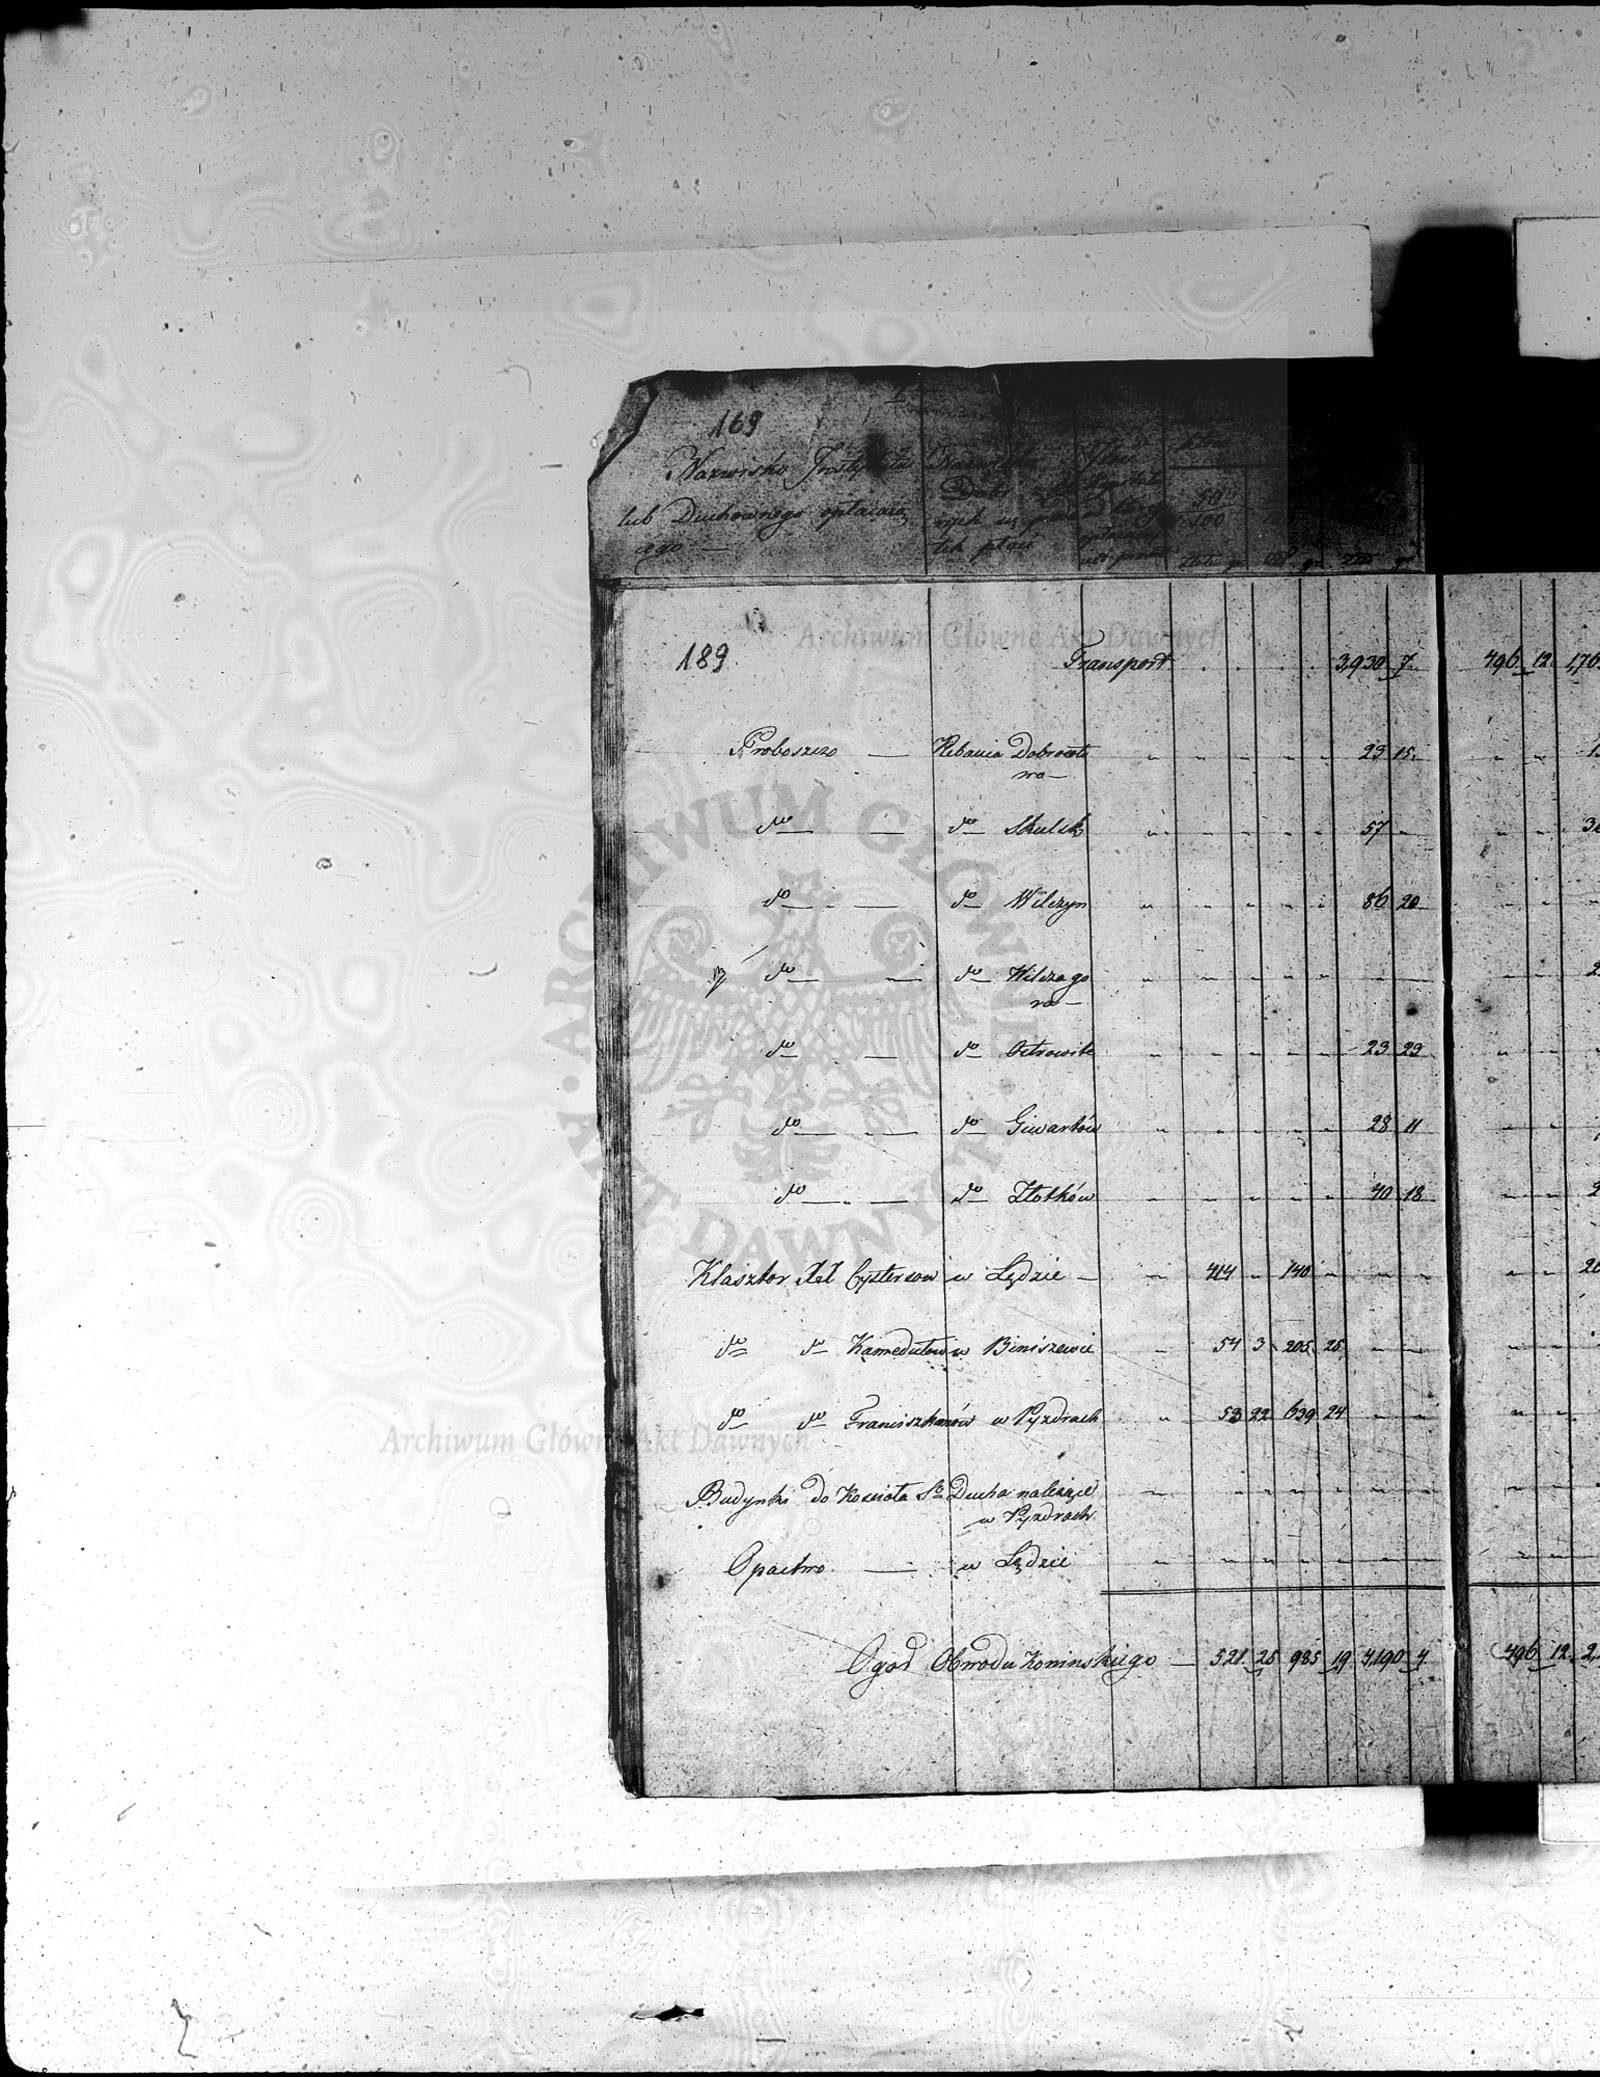 169
Nazwisko Instytutu
lub Duchownego opłacaią
cego —
50
100
189 Transport . . . . 3,930 7 496 12 1,76
Proboszcz — Plebania Dobrosoło
wo — 23 15
do — do Skulsk 57 -
do — do Wilczyn 86 20
do — do Wilczago
ra —
do — do Ostrowite 23 29
do — do Giwartów 28 11
do — do Złotków 40 18
Klasztor XX Cystersow w Lędzie — 414 - 140 -
do do Kamedułow w Biniszewie 54 3 205 25
do do Franciszkanów w Pyzdrach 53 22 639 24
Budynki do Kościoła Sgo Ducha należące
w Pyzdrach
Opactwo — w Lędzie
Ogół Obwodu Koninskiego — 521 25 985 19 4,190 4 496 12 2,
Archiwum Główne Akt Dawnych
ARCHIWUM GŁÓWNE AKT DAWNYCH
Archiwum Główne Akt Dawnych